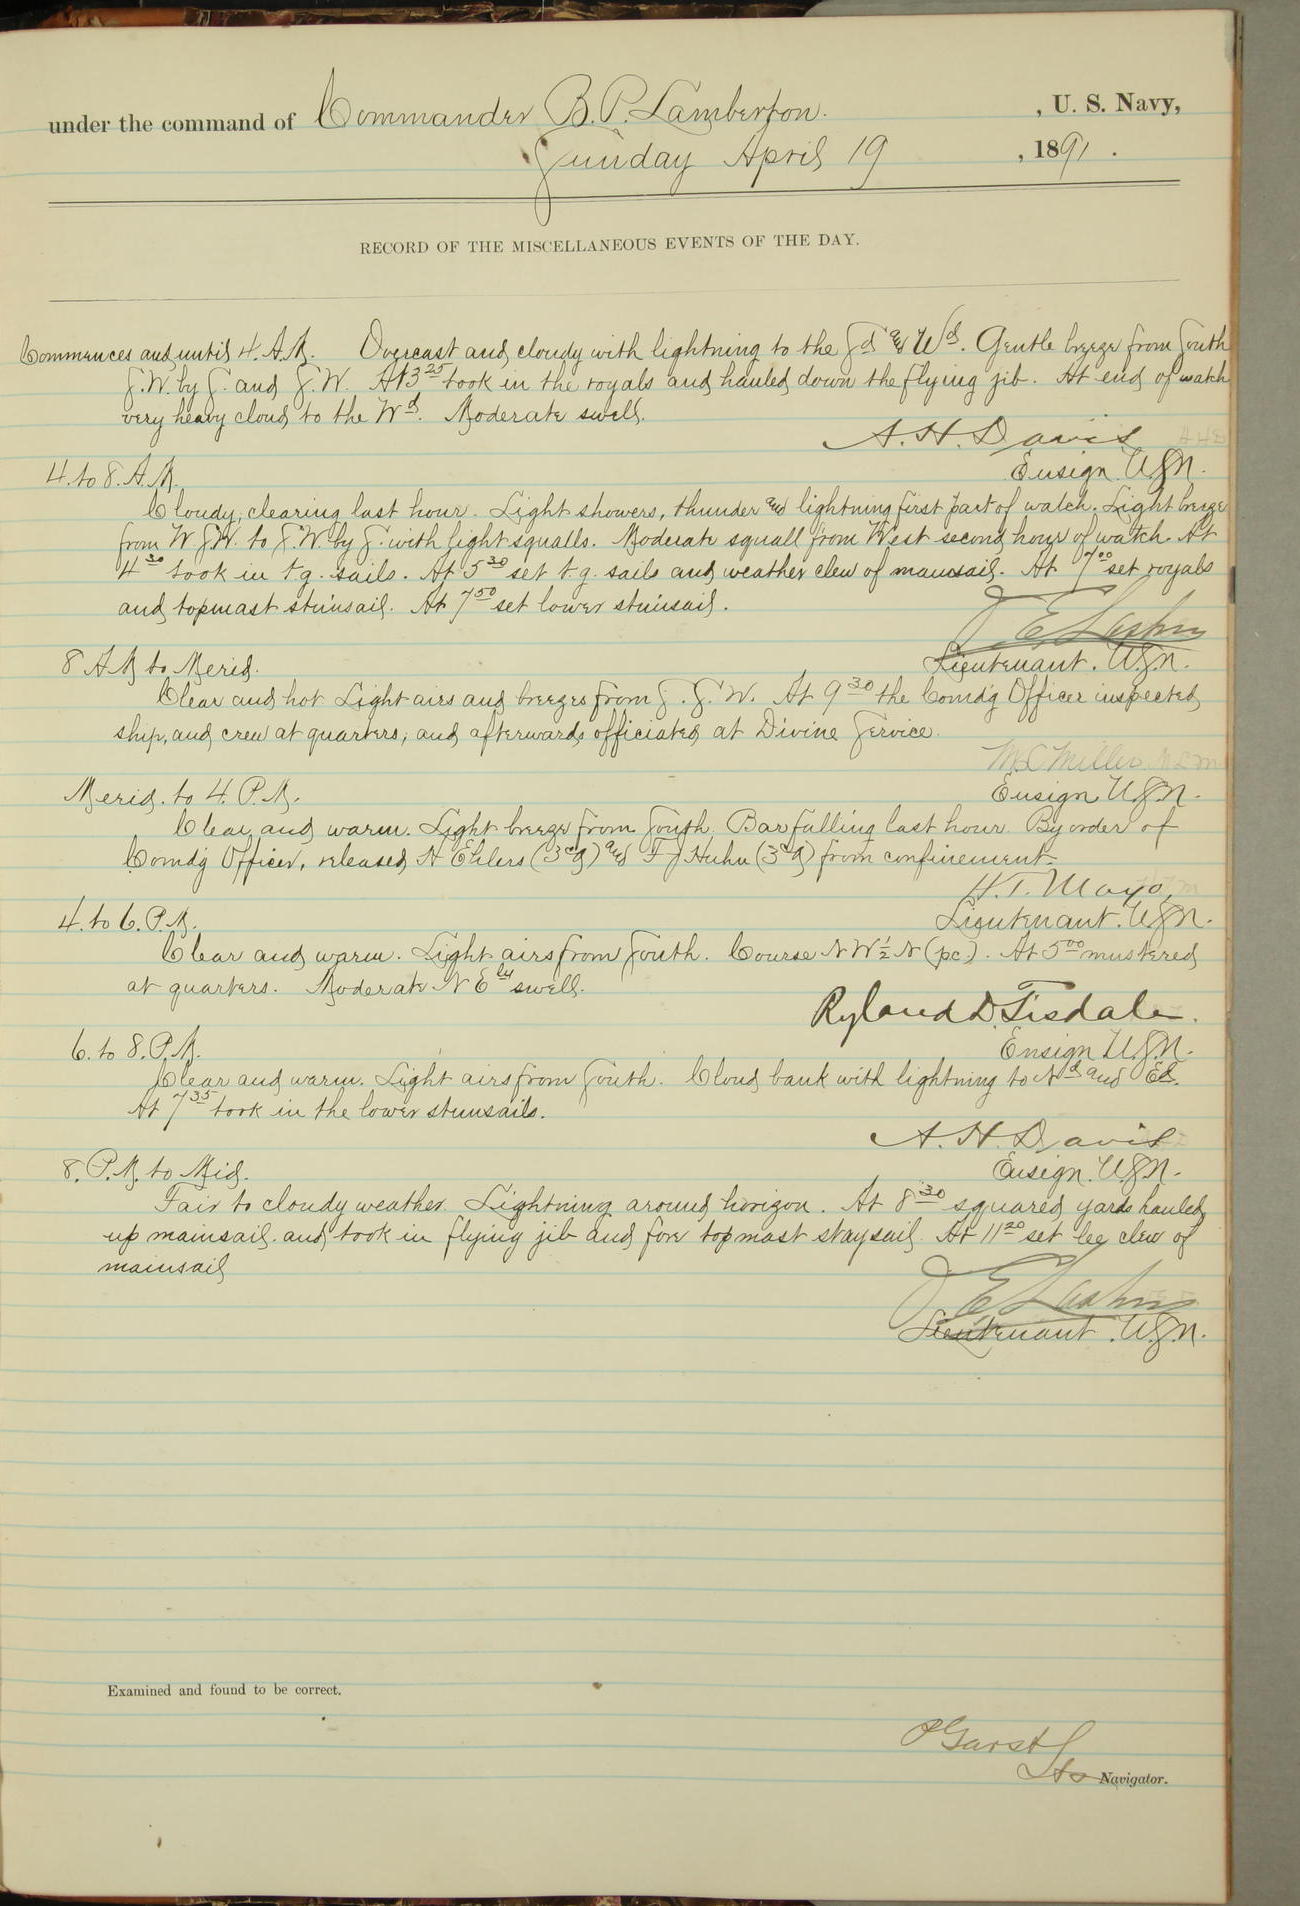 under the command of Commander B. P. Lamberton. , U. S. Navy,
Sunday April 19 , 1891 .
RECORD OF THE MISCELLANEOUS EVENTS OF THE DAY.
Commences and until 4. A.M. Overcast and cloudy with lightning to the Sd and Wd. Gentle breeze from South
S.W. by S. and S.W. At 3 25 took in the royals and hauled down the flying jib. At end of watch
very heavy cloud to the Wd. Moderate swell.
A. H. Davis
Ensign. U.S.N.
4. to 8. A.M.
Cloudy, clearing last hour. Light showers, thunder and lightning first part of watch. Light breeze
from W.S.W. to S.W. by S. with light squalls. Moderate squall from West second hour of watch. At
4 30 took in t.g. sails. At 5 30 set t.g. sails and weather clew of mainsail. At 7 00 set royals
and topmast stunsail. At 7 50 set lower stunsail.
Lieutenant. U.S.N.
8 A.M to Merid.
Clear and hot Light airs and breezes from S. S. W. At 9 30 the Comd'g Officer inspected
ship, and crew at quarters; and afterwards officiated at Divine Service.
M. C. Miller
Ensign U.S.N.
Merid. to 4. P.M.
Clear and warm. Light breeze from South. Bar falling last hour. By order of
Comd'g Officer, released N Ehlers (3 cd) and F J Huhn (3 cd) from confinement.
H. T. Mayo,
Lieutenant. U.S.N.
4. to 6. P.M.
Clear and warm. Light airs from South. Course N W ½ N (pc.). At 5 00 mustered
at quarters. Moderate N Ely swell.
Ryland D. Tisdale.
Ensign U.S.N.
6. to 8. P.M.
Clear and warm. Light airs from South. Cloud bank with lightning to Nd and Ed.
At 7 35 took in the lower stunsails.
A. H. Davis
Ensign. U.S.N.
8. P.M. to Mid.
Fair to cloudy weather. Lightning around horizon. At 8 30 squared yards hauled
up mainsail. and took in flying jib and fore topmast staysail. At 11 20 set lee clew of
mainsail
Lieutenant. U.S.N.
Examined and found to be correct.
P Garst
Lt Navigator.